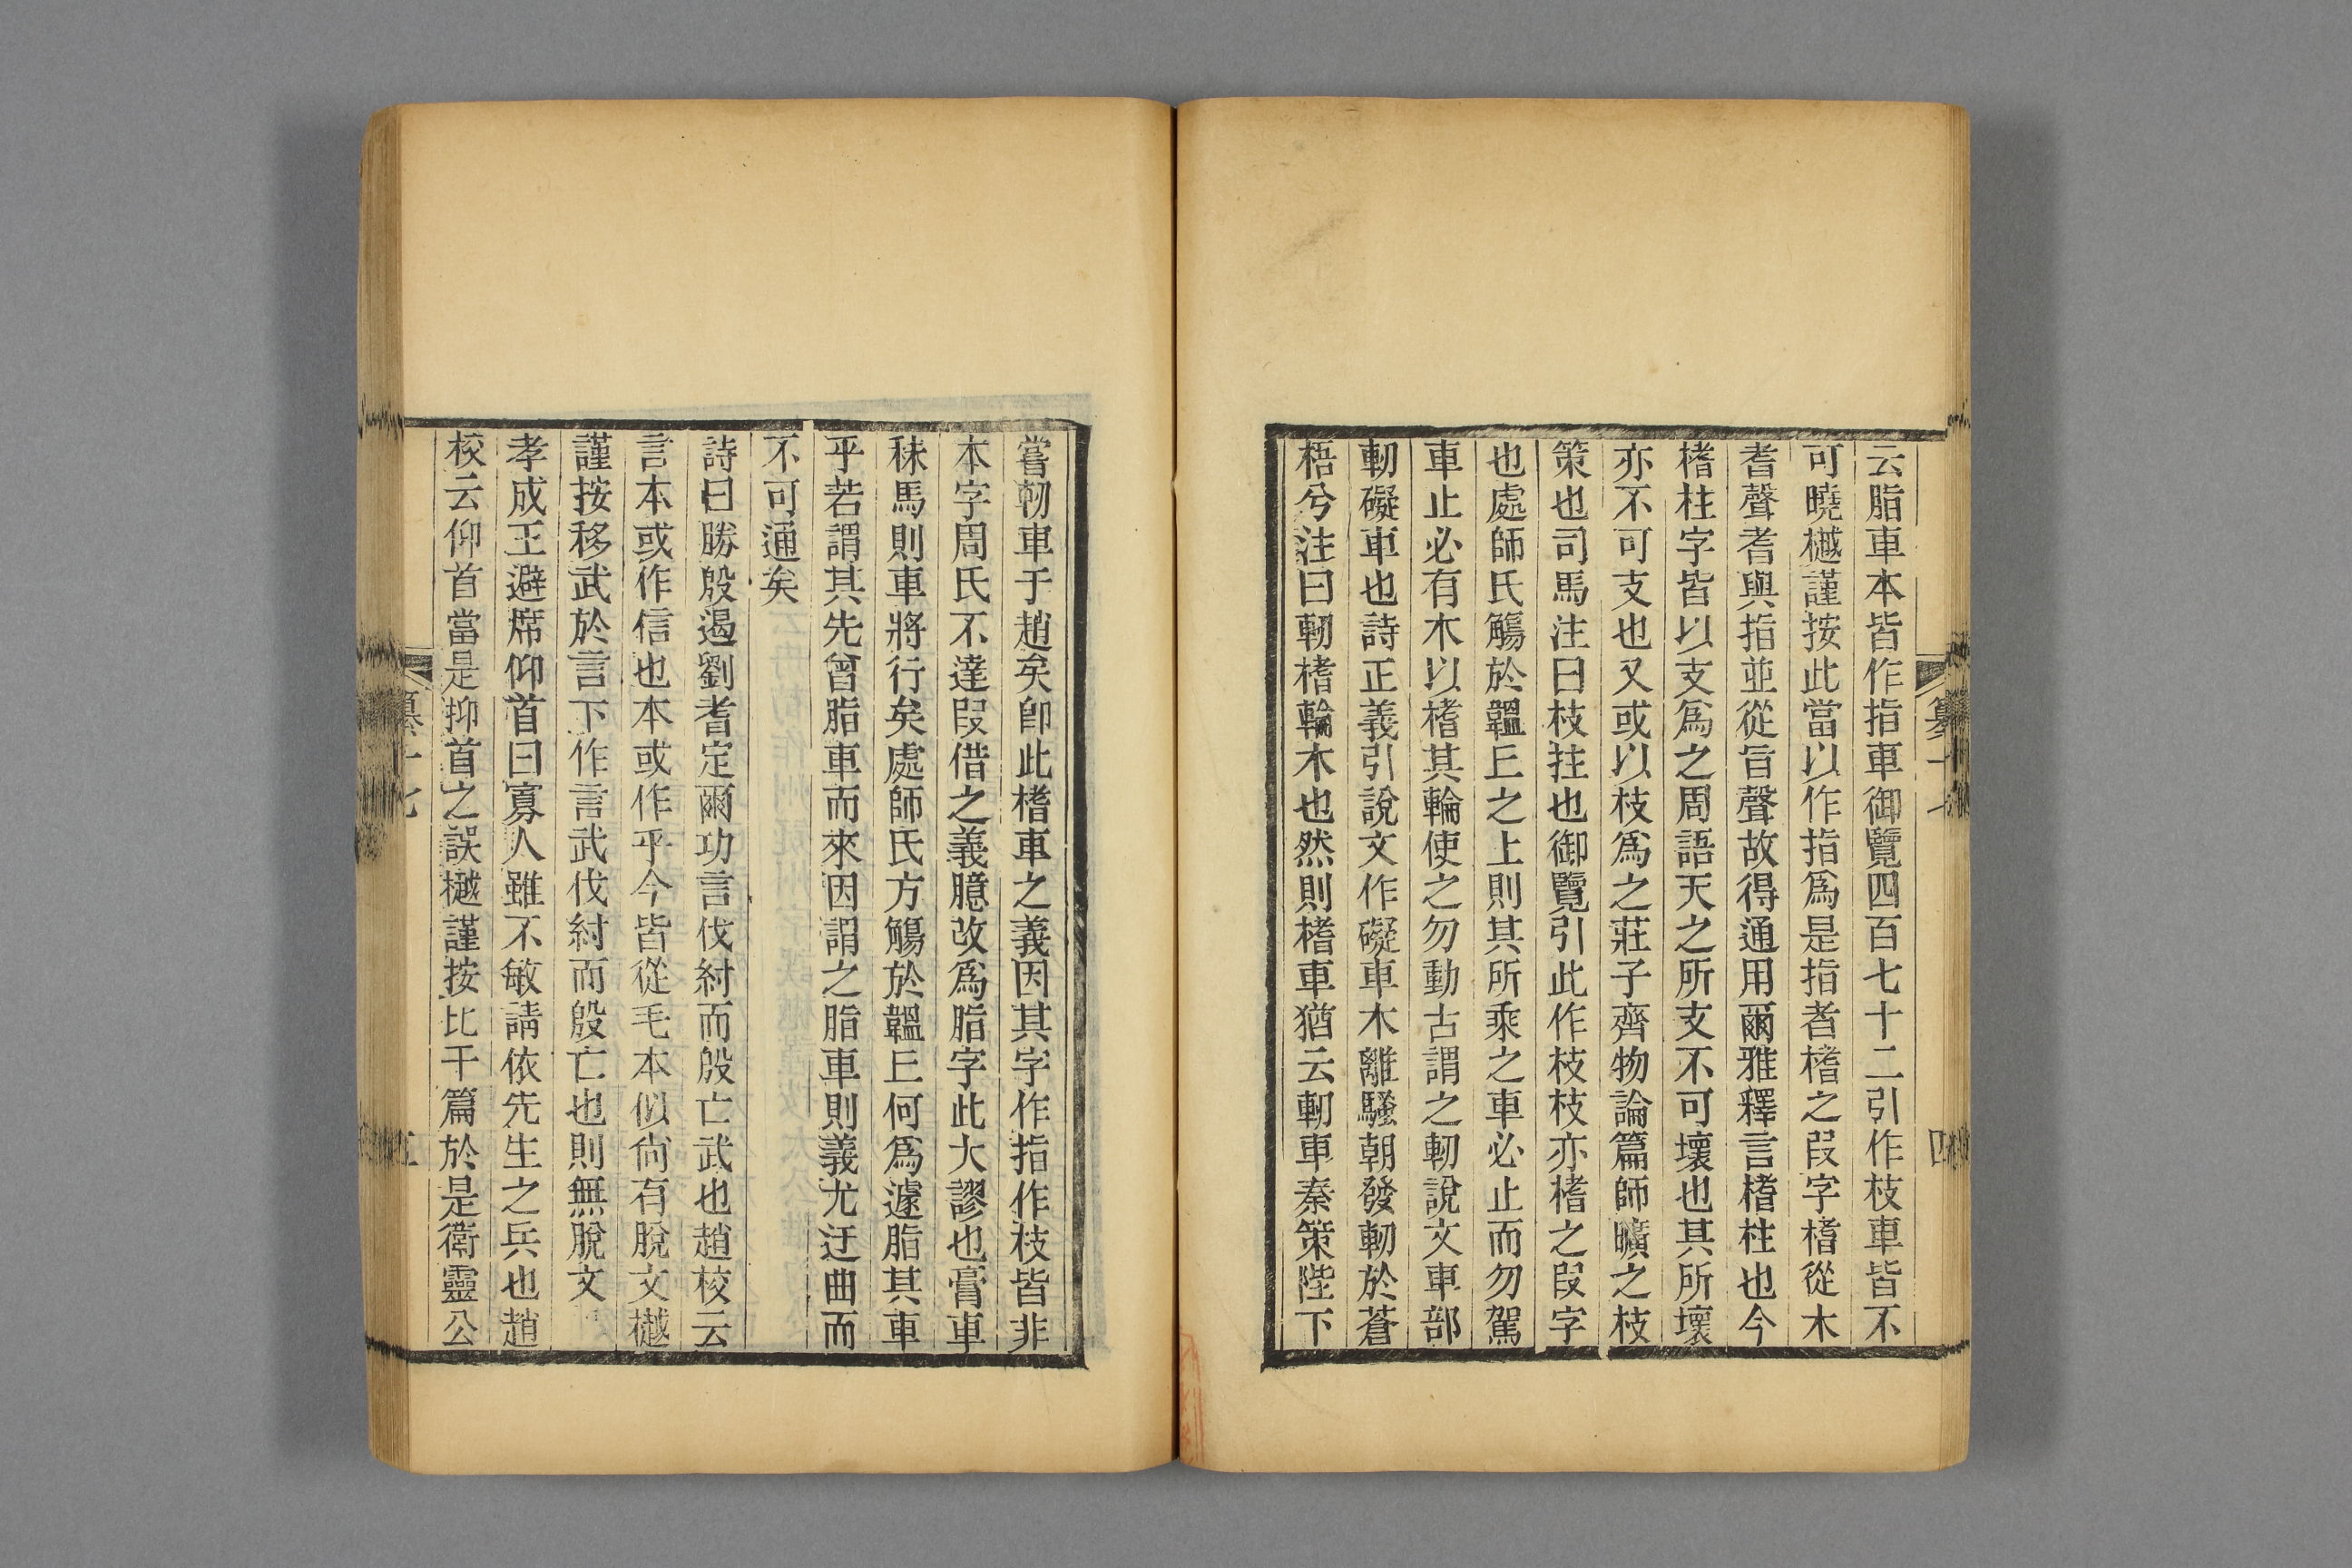 云脂車本皆作指車御覽四百七十二引作枝車皆不
可曉樾謹按此當以作指爲是指者楮之叚字楮從木
耆聲耆與指並從旨聲故得通用爾雅釋言楮柱也今
楮柱字皆以支爲之周語天之所支不可壞也其所壞
亦不可支也又或以枝爲之莊子齊物論篇師曠之枝
策也司馬注曰枝拄也御覽引此作枝枝亦楮之叚字
也處師氏觴於韞𠀐之上則其所乘之車必止而勿駕
車止必有木以楮其輪使之勿動古謂之軔說文車部
軔礙車也詩正義引說文作礙車木離騷朝發軔於蒼
梧兮注曰軔楮輪木也然則楮車猶云軔車秦策陛下
纂十七
四
嘗軔車于趙矣卽此楮車之義因其字作指作枝皆非
本字周氏不達叚借之義臆改爲脂字此大謬也膏車
秣馬則車將行矣處師氏方觴於韞𠀐何爲遽脂其車
乎若謂其先曾脂車而來因謂之脂車則義尤迂曲而
不可通矣
詩曰勝殷遏劉耆定爾功言伐紂而殷亡武也趙校云
言本或作信也本或作乎今皆從毛本似尙有脫文樾
謹按移武於言下作言武伐紂而殷亡也則無脫文
孝成王避席仰首曰寡人雖不敏請依先生之兵也趙
校云仰首當是抑首之誤樾謹按比干篇於是衛靈公
纂十七
五